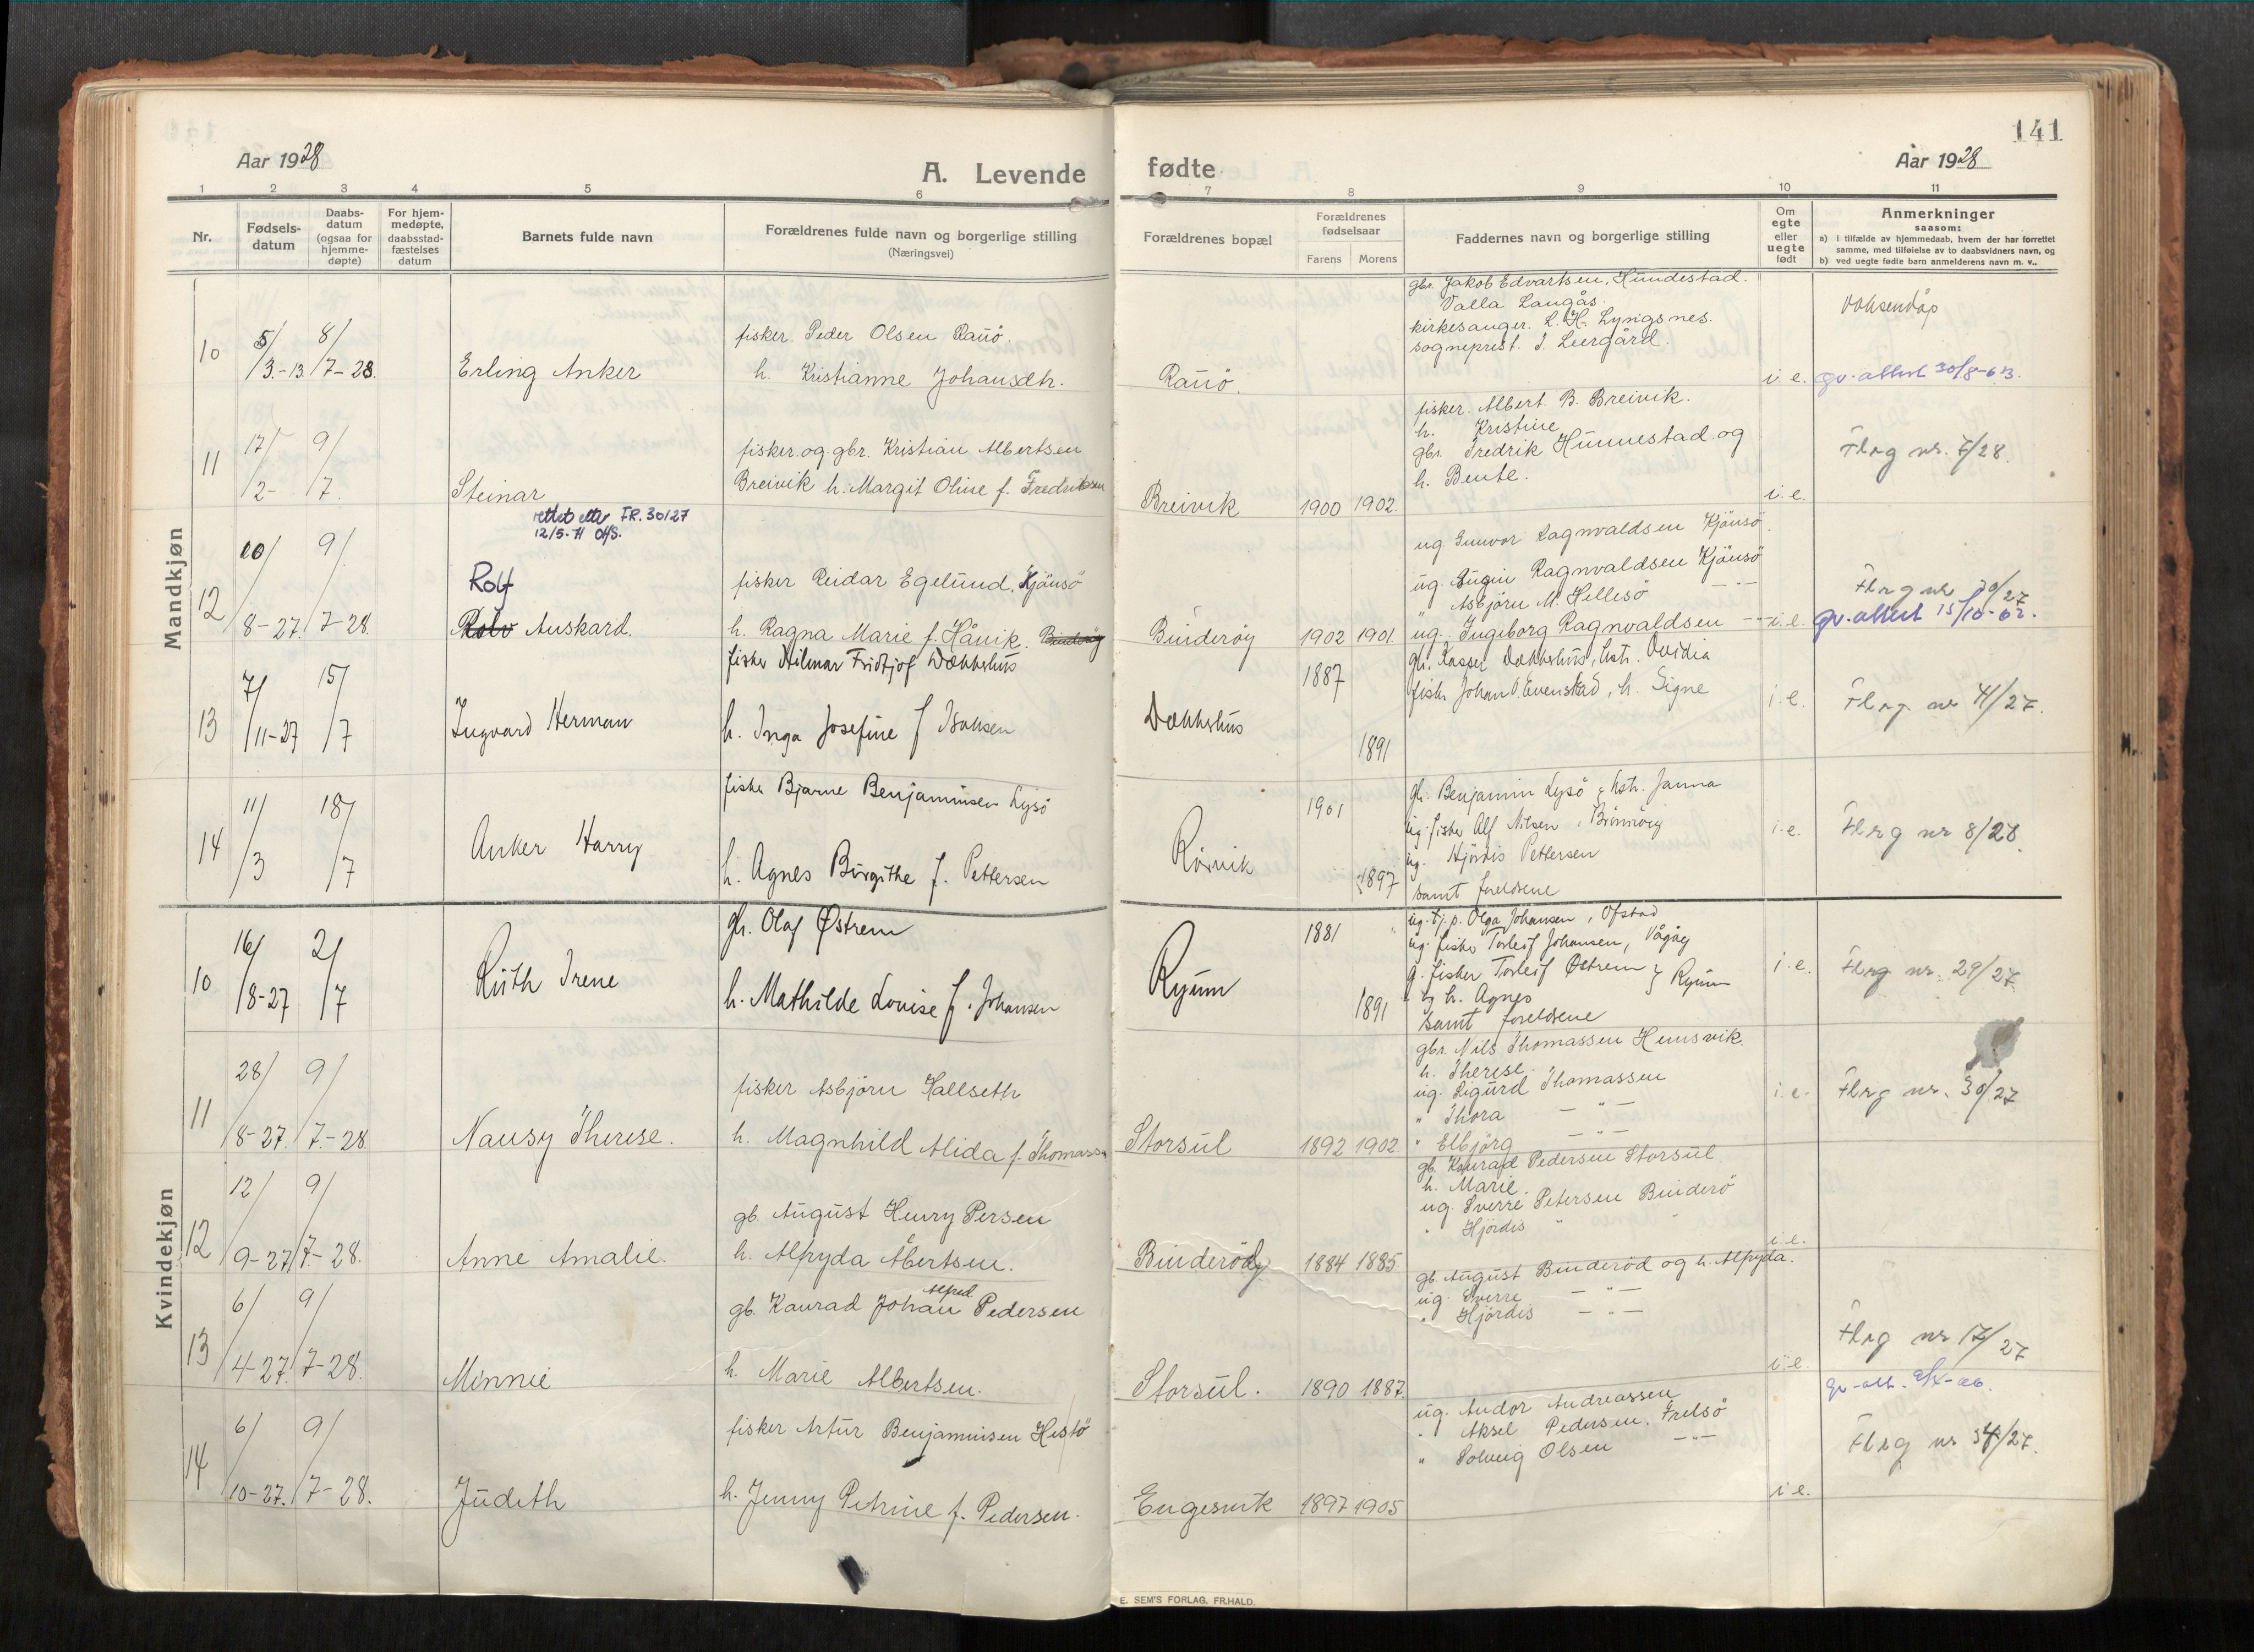 141
Aar 1928
A. Levende fødte
Aar 1928
1 2 3 4 5 6 7 8 9 10 11
Nr.
Fødsels-
datum
Daabs-
datum
(ogsaa for
hjemme-
døpte)
For hjem-
medøpte,
daabsstad-
fæstelses
datum
Barnets fulde navn
Forældrenes fulde navn og borgerlige stilling
(Næringsvei)
Forældrenes bopæl
Forældrenes
fødselsaar
Farens Morens
Faddernes navn og borgerlige stilling
Om
egte
eller
uegte
født
Anmerkninger
saasom:
a) i tilfælde av hjemmedaab, hvem der har forrettet
samme, med tilføielse av to daabsvidners navn, og
b) ved uegte fødte barn anmelderens navn m. v..
Mandkjøn
10
5/3.-13. 8/7-28.
Erling Anker
fisker Peder Olsen Raüö.
h. Kristianne Johansdtr.
Raüö.
gbr. Jakob Edvartsen, Hündestad.
Valla Langås.
kirkesanger. L. H. Lyngsnes.
sogneprest. I. Leergård.
i. e.
Voksendåp
gv. attest 30/8-63.
11
17/2- 9/7.
Steinar
fisker og gbr. Kristian Albertsen
Breivik h. Margit Oline f. Fredriksen
Breivik 1900 1902.
fisker. Albert B. Breivik.
h. Kristine
gbr. Fredrik Hünnestad og
h. Bente.
i. e.
Flrg nr. 7/28.
rettet etter FR. 30/27
12/5-71 OHS.
12
20/8-27. 9/7-28.
Rolf
Rolv Anskard.
fisker Reidar Egelünd, Kjönsö
h. Ragna Marie f. Hånik. Binderöy
Binderöy 1902 1901.
ug. Gunvor Ragnvaldsen Kjönsö.
ug. Ragnvaldsen Kjönsö
" Asbjörn M. Hellesö
ug. Ingeborg Ragnvaldsen
i. e.
Flrg nr 30/27
gv. attest 15/10-62.
13
7/11-27 15/7
Ingvard Herman
fisker Hilmar Fridtjof Dekkerhüs
h. Inga Josefine f Isaksen
Dekkerhüs
1887
1891
Dekkerhüs, Ovidia
fisker Johan O. Evenstad, h. Signe
i. e.
Flrg nr 41/27.
14
11/3 18/7
Anker Harry
fisker Bjarne Benjaminsen Lysö
h. Agnes Birgithe f. Pettersen
Rörvik
1901
1897
gb. Benjamin Lysö & Janna
ug. fisker Alf Nilsen, Brönnöy
ug. Hjördis Pettersen
samt foreldrene
i. e.
Flrg nr 8/28.
Kvindekjøn
10
16/8-27 2/7
Rüth Irene
gb. Olaf Østrem
h. Mathilde Lovise f. Johansen
Ryüm
1881
1891
ug. tj. p. Olga Johansen, Ofstad
ug. fisker Torleif Johansen, Vågöy
g. fisker Torleif Østrem } Ryüm
og h. Agnes
samt foreldrene
i. e.
Flrg nr. 29/27.
11
28/8-27. 9/7-28
Nansy Therese.
fisker Asbjörn Hallseth
h. Magnhild Alida f. Thomassen
Storsül 1892 1902.
gbr. Nils Thomassen Hensvik.
h. Therese.
ug. Sigurd Thomassen
" Thora — " —
" Elbjörg — " —
i. e.
Flrg nr. 30/27
12
12/9-27. 9/7-28.
Anne Amalie.
gb. Aügüst Henry Persen
h. Alfryda Albertsen.
Binderöd 1884 1885.
gb. Konrad Pedersen Storsül.
h. Marie.
ug. Sverre Petersen Binderö
" Hjördis "
i. e.
13
6/4-27. 9/7-28.
Minnie
gb. Konrad Johan Alfred Pedersen
h. Marie Albertsen.
Storsül. 1890 1887.
gb. Aügüst Binderöd og h. Alfryda.
ug. Sverre — " —
" Hjördis — " —
i. e.
Flrg nr 17/27
14
6/10-27. 9/7-28.
Jüdith
fisker Artür Benjaminsen Hestö
h. Jenny Petrine f. Pedersen.
Engesvik 1897 1905
ug. Andor Andreassen
" Aksel Pedersen. Frelsö
" Solveig Olsen — " —
i. e.
Flrg nr 34/27.
E. SEM'S FORLAG, FR.HALD.